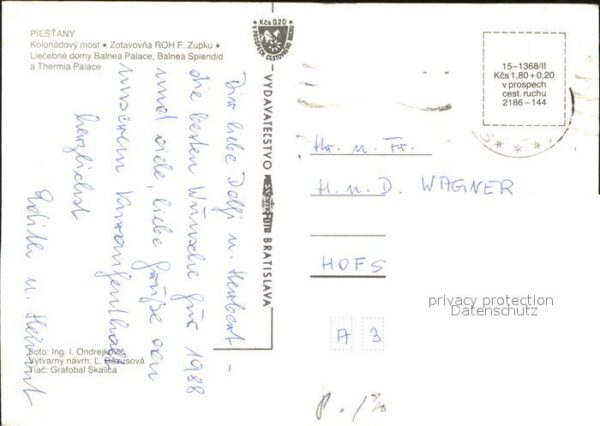 PIEŠŤANY
Kolonádový most • Zotavovňa ROH F. Zupku •
Liečebné domy Balnea Palace, Balnea Splendid
a Thermia Palace
Kčs 0,20
V PROSPECH CESTOVNÉHO RUCHU
VYDAVATEĽSTVO
BRATISLAVA
15–1368/II
Kčs 1,80+0,20
v prospech
cest. ruchu
2186 –144
Dir liebe Dolfi u. Herbert –
die besten Wünsche für 1988
und viele, liebe Grüße von
unserem
herzlichst
Edith u. Helmut
Hr. u. Fr.
H. u. D. WAGNER
HOFS
A 3
privacy protection
Datenschutz
Foto: Ing. I. Ondrejkovič
Výtvarný návrh: Ľ. Rázusová
Tlač: Grafobal Skalica